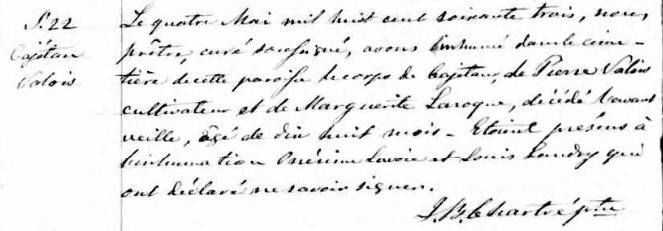 S. 22
Cajétan
Valois
Le quatre Mai mil huit cent soixante trois, nous,
prêtre, curé soussigné, avons inhumé dans le cime-
tière de cette paroisse le corps de Cajetan, de Pierre Valois
cultivateur et de Marguerite Laroque, décédé l'avant
veille, âgé de dix huit mois - Etaient présens à
l'inhumation Onésime Lavoie et Louis Landry qui
ont déclaré ne savoir signer.
J. B. Chartré ptre